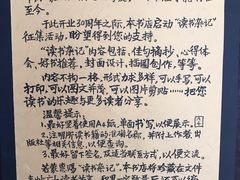 至今。
于此开业30周年之际,本书店启动"读书杂记"
征集活动,盼望得到您的支持。
"读书杂记"内容包括,佳句摘抄、心得体
会、好书推荐、封面设计、插图创作,等等。
内容不拘一格,形式多样,可以手写,可以
打印,可以图文并茂,可以图片剪贴……把您
读书的乐趣与更多读者分享。
温馨提示:
1.最好竖着使用A4纸,单面书写,以便展示。
2.注明所读书籍的书名,并附上作者、出
版社等相关信息,以便查询。
3.最好留下签名,及通畅联系方式,以便交流。
若蒙惠赐"读书杂记",本书店将珍藏在文件